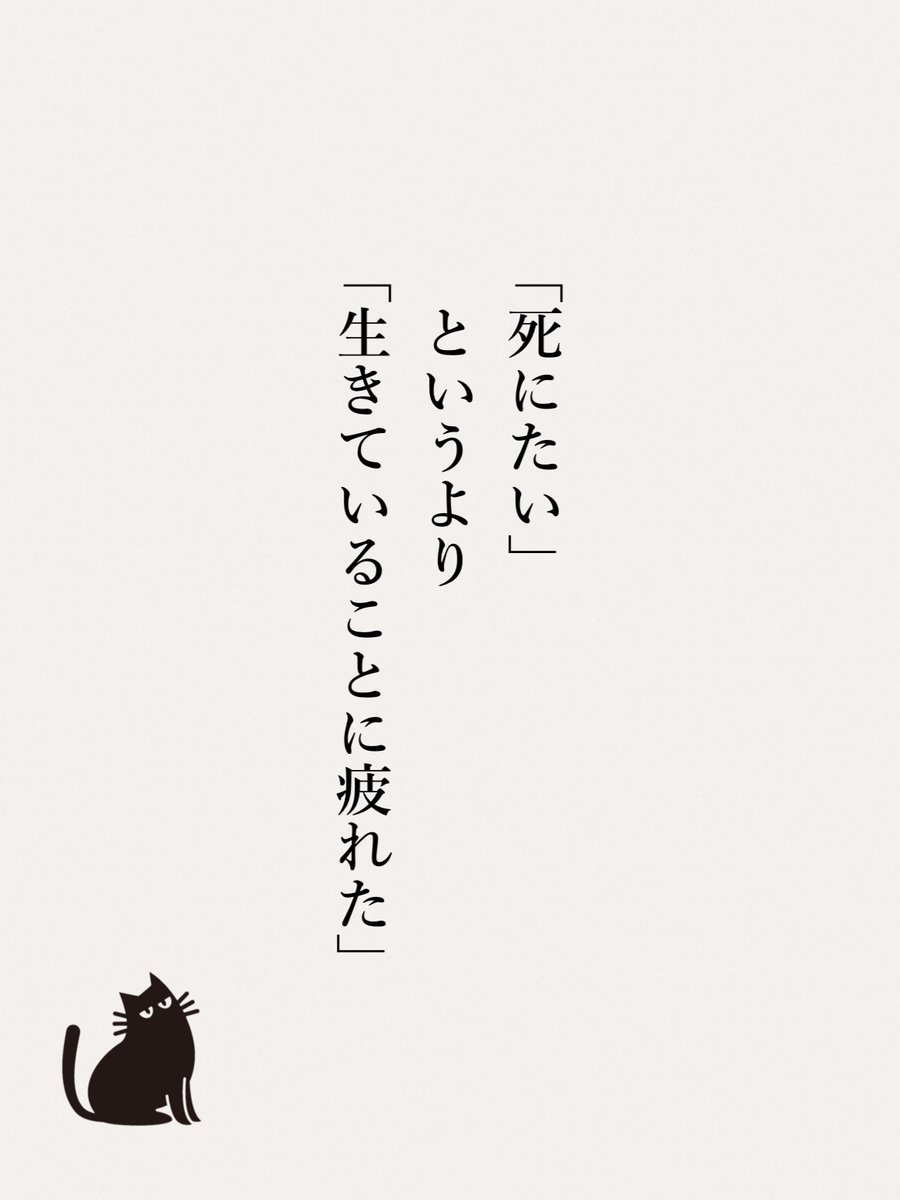 「死にたい」
というより
「生きていることに疲れた」